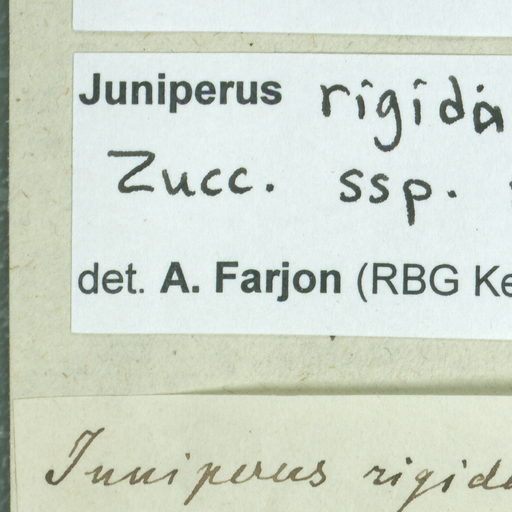 Juniperus rigida
Zucc. ssp.
det. A. Farjon (RBG Ke
Juniperus rigida